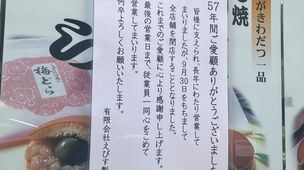 57年間ご愛顧ありがとうございました
皆様に支えられ、長年にわたり営業して
まいりましたが、9月30日をもちまして
全店舗を閉店することとなりました。
これまでのご愛顧に心より感謝申し上げます。
最後の営業日まで、従業員一同心をこめて
営業してまいります。
何卒よろしくお願いいたします。
有限会社えびす
がきわだつ一品
焼
梅どら